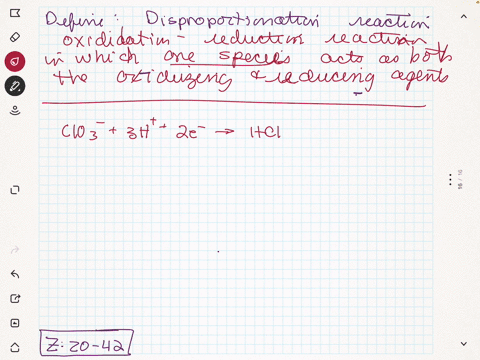 Define: Disproportionation reaction
oxididation - reduction reaction
in which one species acts as both
the oxidizing & reducing agents
ClO3⁻ + 3H⁺ + 2e⁻ → HCl
Z: 20-42
16 / 16